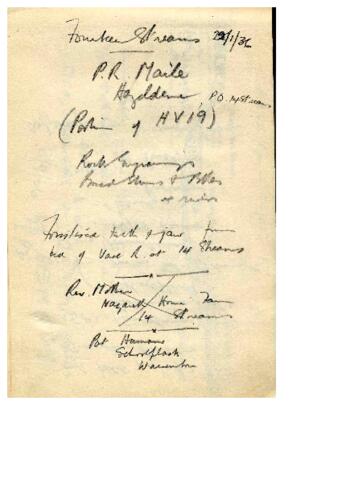 Fourteen Streams 29/1/36
P.R. Maile
Hazeldene, P.O. 14 Streams
(Portion of HV19)
Rock Engravings
Bored Stones &
Fossilised teeth & jaw from
bed of Vaal R. at 14 Streams
Rev. Mother
Nazareth Home
14 Streams
Pat Hamman
Schoolplaats
Warrenton